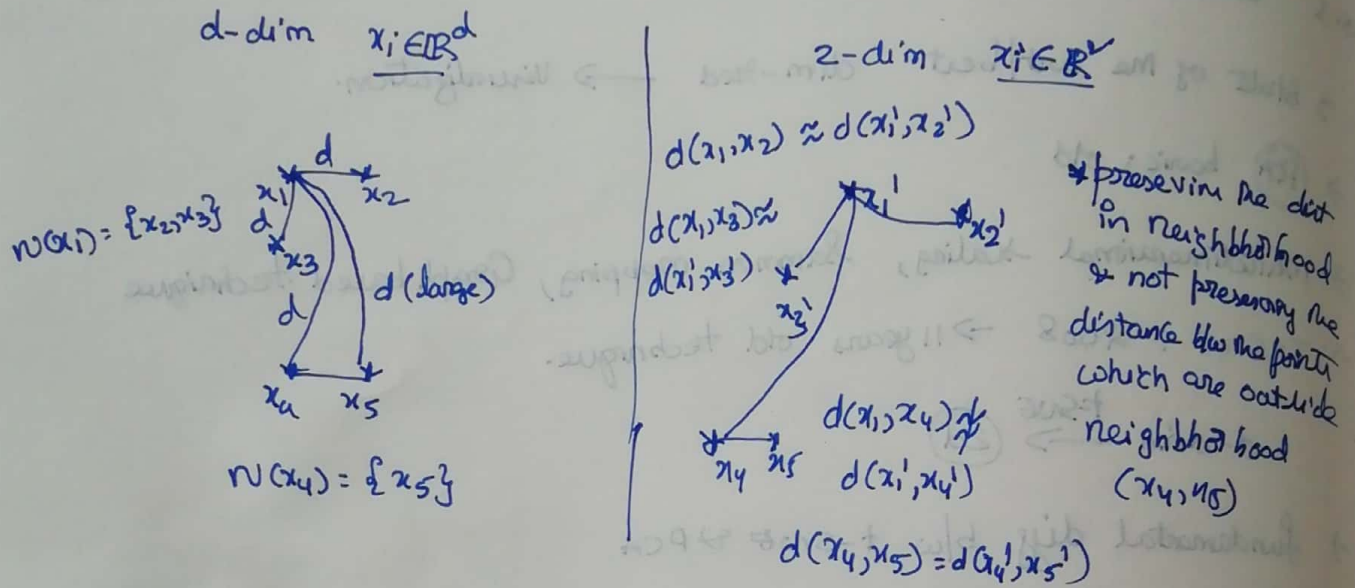 d-dim xi ∈ ℝᵈ
d
x1
x2
N(x1) = {x2, x3}
d
x3
d
d (large)
x4 x5
N(x4) = {x5}
2-dim xi' ∈ ℝ²
d(x1, x2) ≈ d(x1', x2')
x1'
x2'
d(x1, x3) ≈
d(x1', x3')
x3'
x4 x5
d(x1, x4) ≉
d(x1', x4')
d(x4, x5) = d(x4', x5')
* presevim the dist
in neighbhorhood
* not preserving the
distance b/w the points
which are outside
neighbhorhood
(x4, x5)